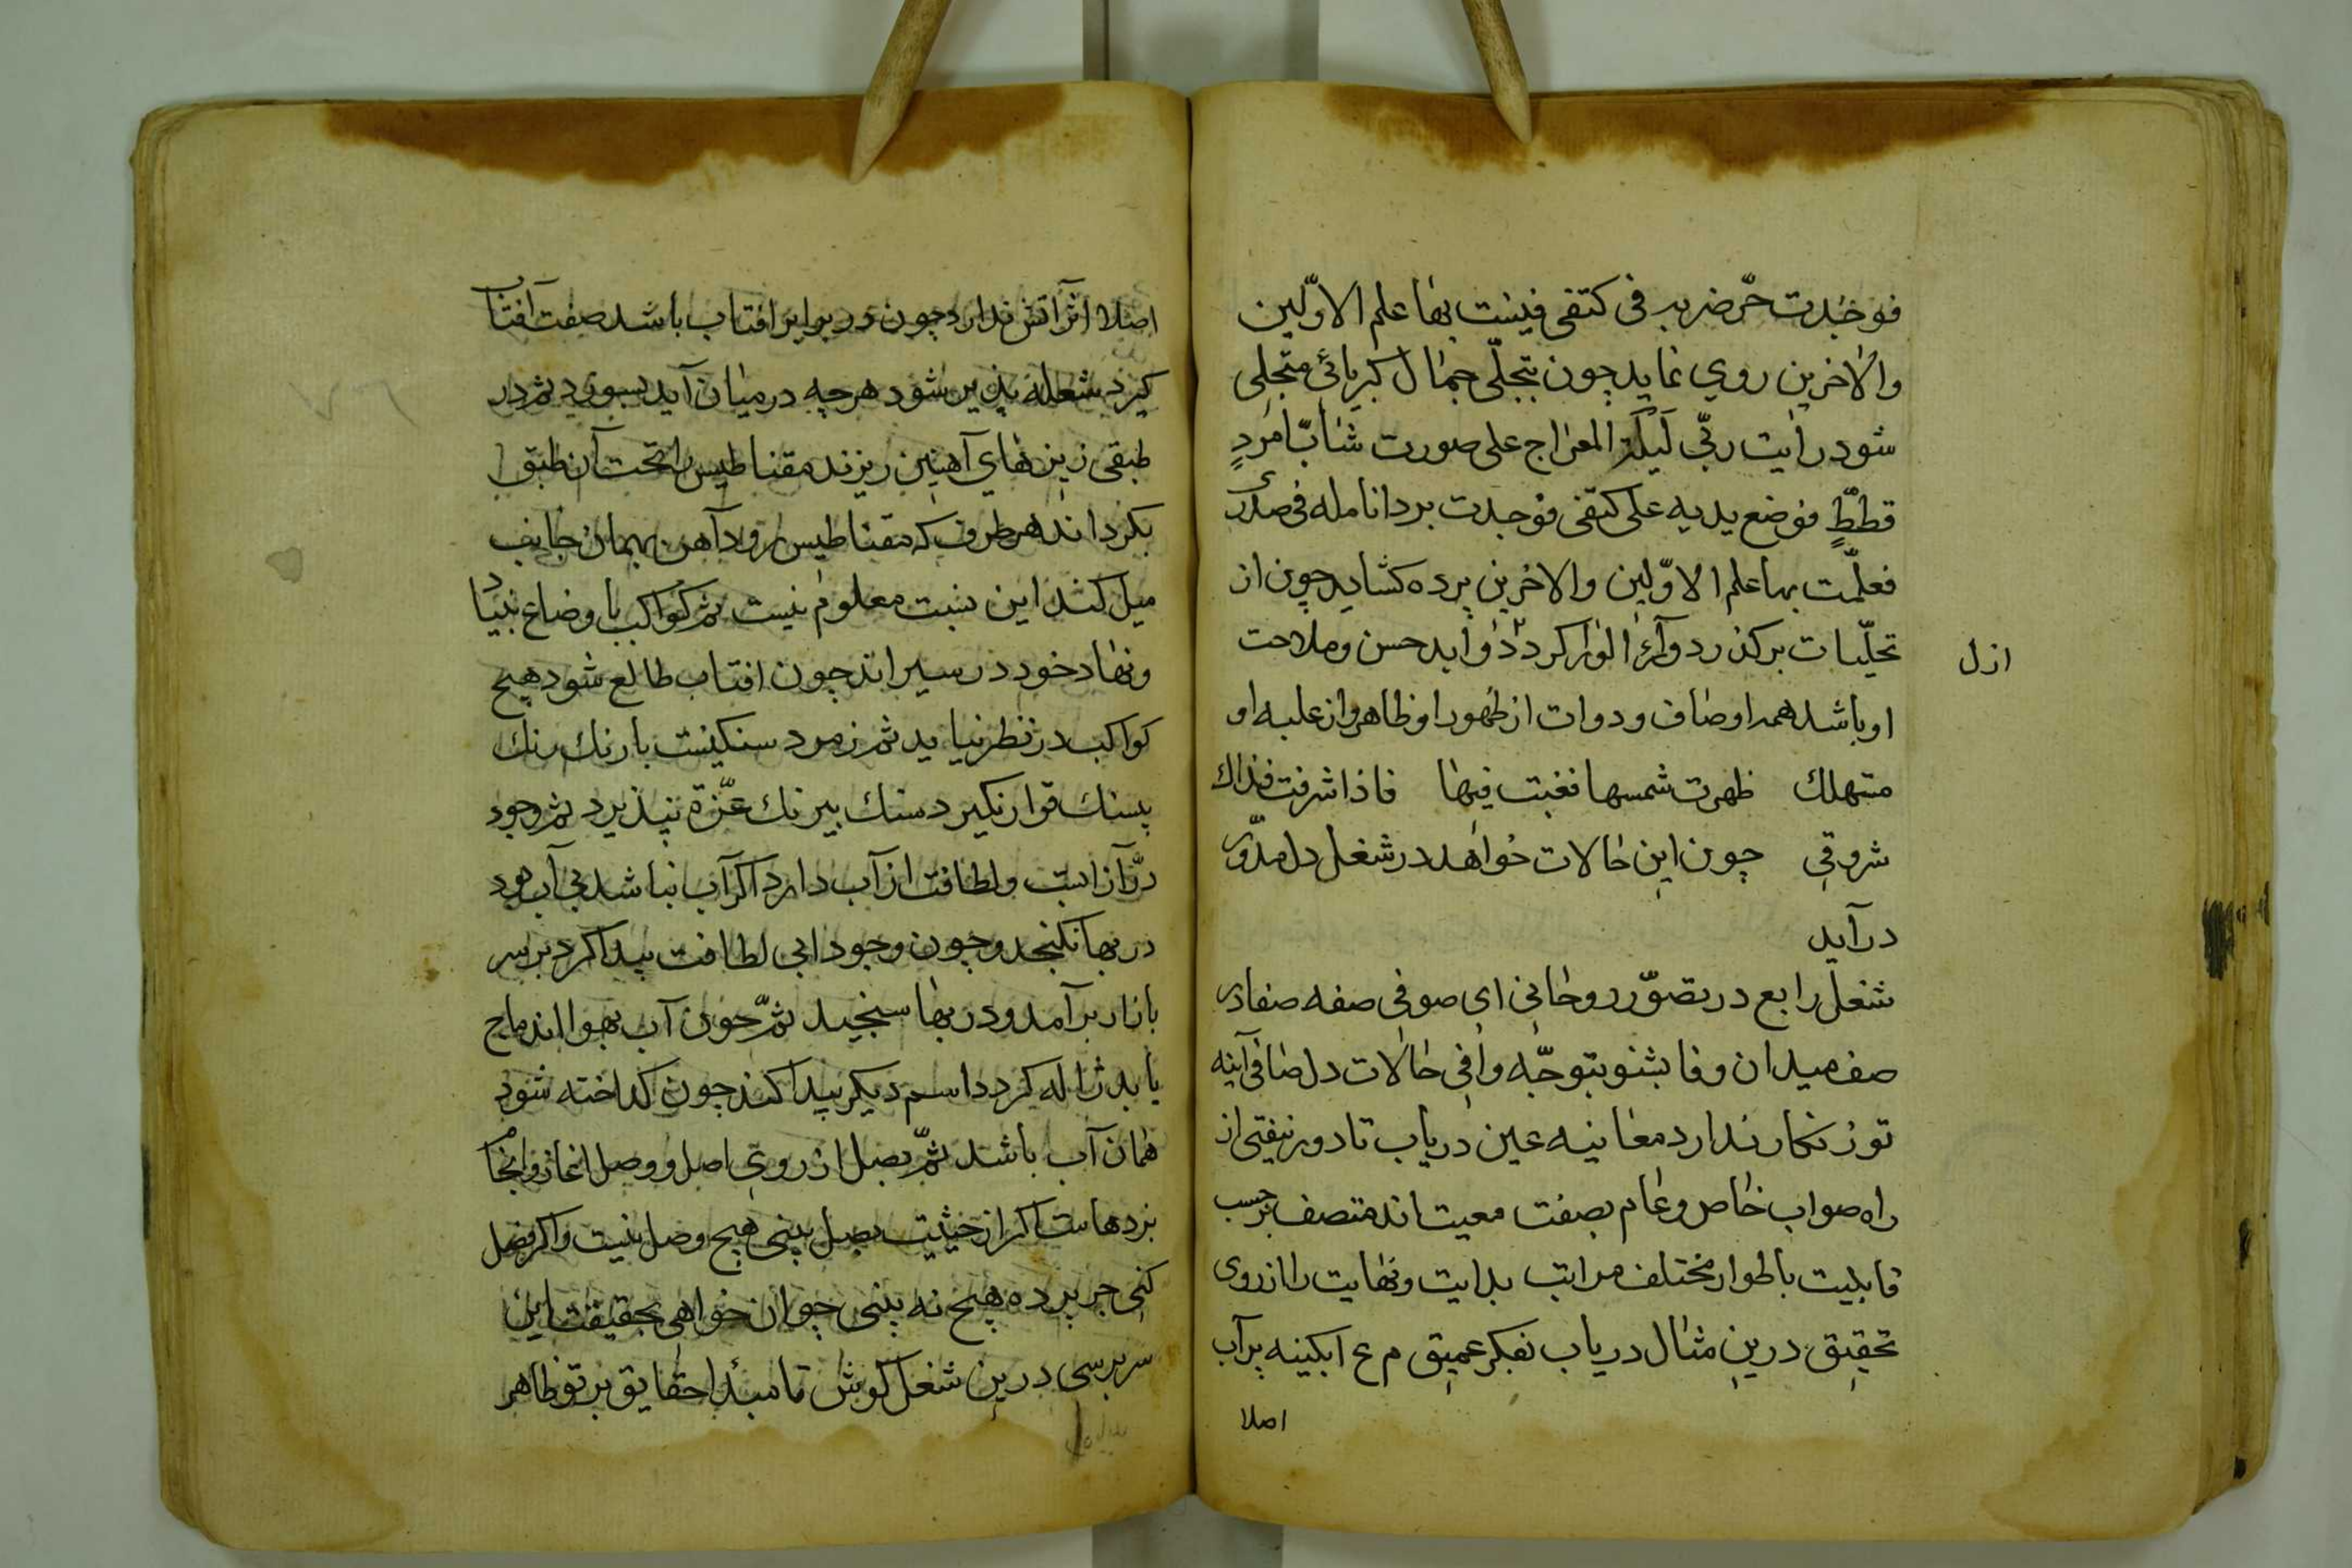 فوجدت حّر ضربه فی کتفی فنیست بها علم الاوّلین
والاخرین روي نماید چون بتجلّی جمال کبریائی متجلی
شود رایت ربّی لَیلَة المعراج علی صورت شابّ اَمرَدٍ
قططٍّ فوضع یدیه علی کتفی فوجدت برد انامله فی صدری
فعلّمت بها علم الاوّلین والاخرین پرده کشاید چون از
تجلّیات برکذرد ورآء الورا کردد ذوابد حسن وملاحت
ازل
او باشد همه اوصاف ودوات از ظهور او ظاهر واز غلبه او
متهلك ظهرت شمسها فغبت فیها فاذا اشرفت فذاك
شروقي چون این حالات خواهد در شغل دل مدوّر
درآید
شغل رابع در تصوّر روحانی ای صوفی صفه صفا در
صف میدان وفا بشنو بتوجّه وافی حالات دل صافی آینه
تو زنکار ندارد معاینه عین دریاب تا دور نیفتی از
راه صواب خاص وعام بصفت معیت اند متصف برحسب
قابلیت باطوار مختلف مراتب بدایت ونهایت را از روی
تحقیق درین مثال دریاب بفکر عمیق م ع ابکینه پرآب
اصلا
اصلا اثر آتش ندارد چون در برابر افتاب باشد صفت آفتاب
کیرد شعله پذیر شود هرچه درمیان آید بسوزد ثم در
طبقی زین های آهنین ریزند مقناطیس را تحت آن طبق
بکردانند هر طرف که مقناطیس رود آهن بهمان جانب
میل کند این نسبت معلوم نیست ثم کواکب با وضاع بنیاد
ونهاد خود در سیر اند چون افتاب طالع شود هیچ
کواکب در نظر نیاید ثم زمرد سنکیست با رنك رنك
بسنك قرار نکیرد سنك بیرنك عزّة نپذیرد ثم وجود
درّ از آبست ولطافت از آب دارد اکر آب نباشد بی آب بود
در بها نکنجد وچون وجود ابی لطافت پیدا کرد بر سر
بازار برآمد ودر بها سنجید ثمّ چون آب بهوا اندماج
یابد ژاله کردد اسم دیکر پیدا کند چون کداخته شود
همان آب باشد ثمّ بصل از روی اصل ووصل اغاز وانجام
پردهاست اکر از حیثیت بصل بینی هیچ وصل نیست واکر فصل
کنی جز پرده هیچ نه بینی چو ان خواهی بحقیقت این
سر برسی درین شغل کوش تا مبدا حقایق بر تو ظاهر